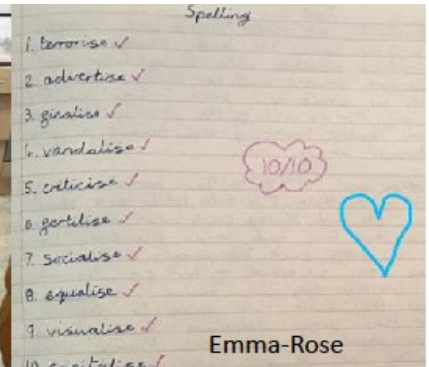 Spelling
1. terrorise ✓
2. advertise ✓
3. finalise ✓
4. vandalise ✓
5. criticise ✓
10/10
6. fertilise ✓
7. socialise ✓
8. equalise ✓
9. visualise ✓
Emma-Rose
10. capitalise ✓